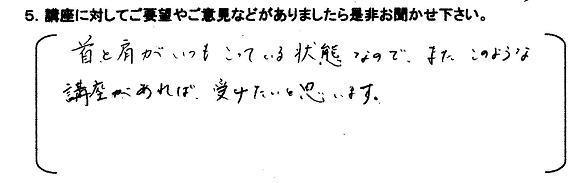 5. 講座に対してご要望やご意見などがありましたら是非お聞かせ下さい。
首と肩がいつもこっている状態なので、また このような
講座があれば、受けたいと思います。